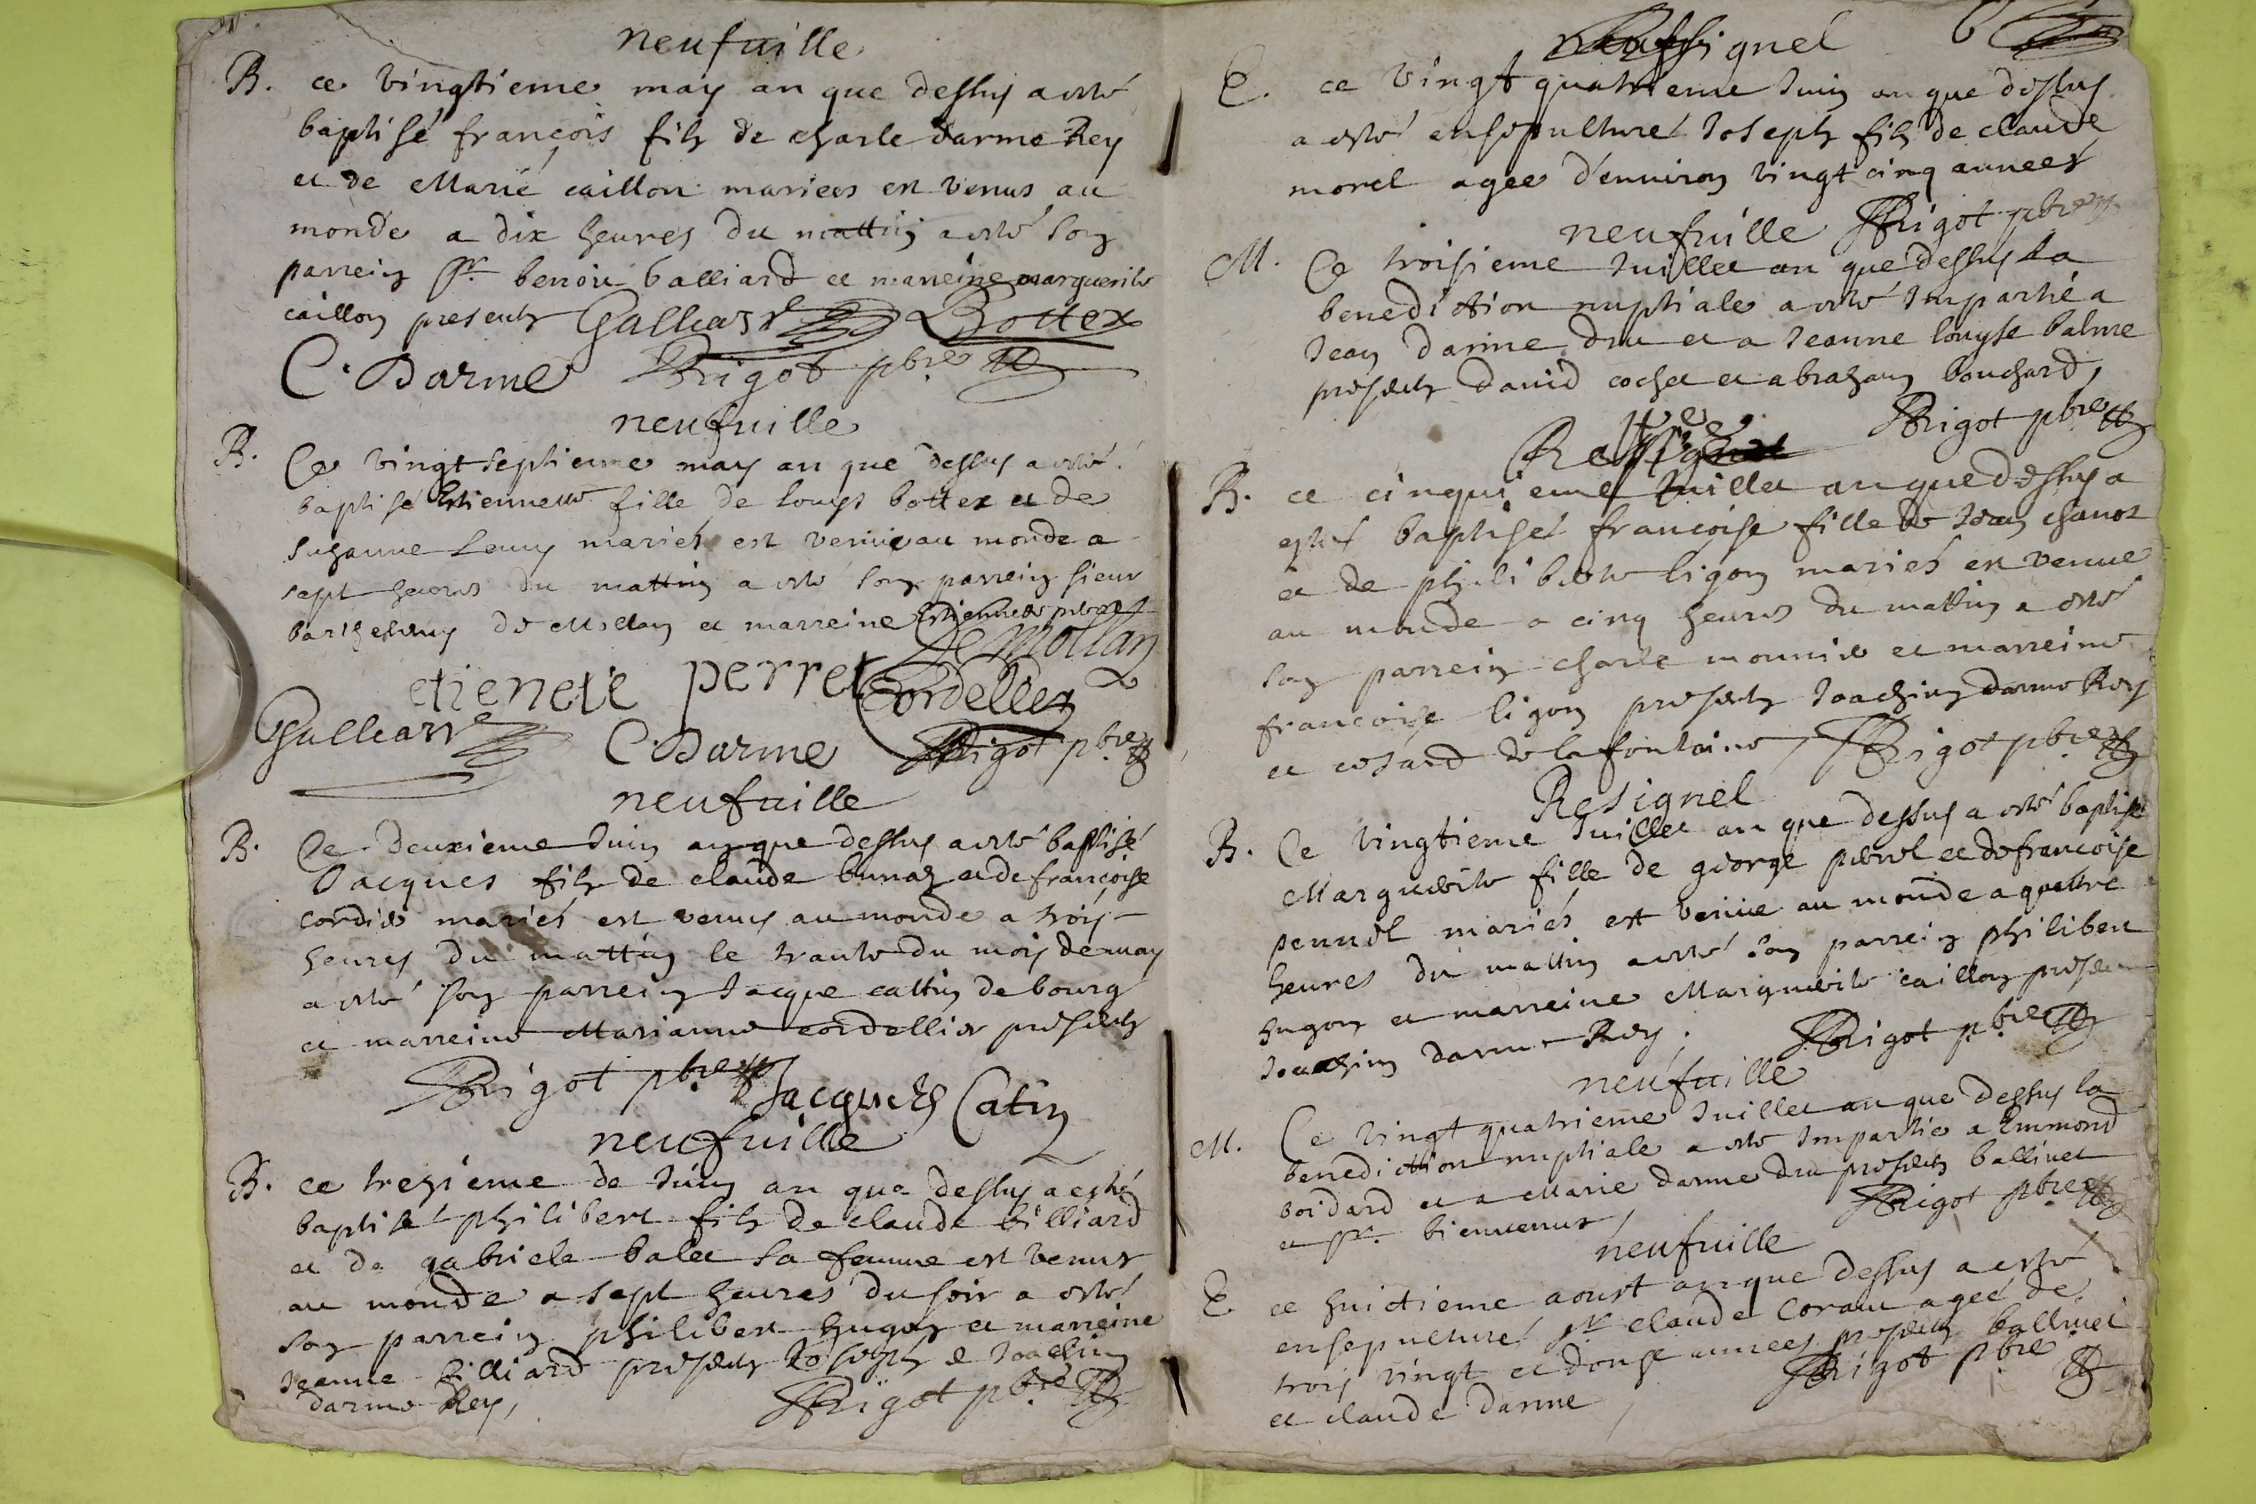 neufuille
B. ce vingtieme may an que dessus a esté
baptisé françois fils de charle darme Rey
et de Marie caillon mariees est venus au
monde a dix heures du mattin a esté son
parrein Sr. benoit Galliard et marreine marguerite
caillon presents Galliard Bottex
C. Darme Rigot pbre
neufuille
B. Ce vingt septieme may an que dessus a esté
baptisé Estiennette fille de louys bottex et de
Suzanne mariés est venue au monde a
sept heures du mattin a esté son parrein sieur
barthelemy de Mollan et marreine Estiennette perret
De Mollan
etienete perret Cordellier
Galliard C. Darme Rigot pbre
neufuille
B. Ce deuxieme Juin an que dessus a esté baptisé
Jacques fils de claude bunaz et de françoise
cordier mariés est venus au monde a trois
heures du mattin le trante du mois de may
a esté son parrein Jacque cattin de bourg
et marreine Marianne cordellier presents
Rigot pbre Jacques Catin
neufuille
B. ce trezieme de Juin an que dessus a esté
baptisé philibert fils de claude billiard
et de gabriele balet sa femme est venus
au monde a sept heures du soir a esté
son parrein philibert hugon et marreine
Jeanne billiard presents Joseph & Joachin
darme Rey,
Rigot pbre
Ressignel 6
E. ce vingt quatrieme Juin an que dessus
a esté ensepulturé Joseph fils de claude
morel agee d'enuiron vingt cinq années
neufuille Rigot pbre
M. Ce troisieme Juillet an que dessus la
benediction nuptiale a esté Impartie a
Jean darme dru et a Jeanne louyse balme
presents dauid cochet et abraham bouchard,
Rigot pbre
B. ce cinquieme Juillet an que dessus a
esté baptisé francoise fille de Jean chanor
et de philiberte ligon mariés est venue
au monde a cinq heures du mattin a esté
son parrein charle monnier et marreine
francoise ligon presents Joachin darme Rey
et cesard de la fontaine, Rigot pbre
Resignel
B. Ce vingtieme Juillet an que dessus a esté baptisé
Marguerite fille de george et de francoise
pennel mariés est venue au monde a quattre
heures du mattin a esté son parrein philibert
hugon et marreine Marguerite caillon presents
Joachin darme Rey. Rigot pbre
neufuille
M. Ce vingt quatrieme Juillet an que dessus la
benediction nuptiale a esté Impartie a Emmond
boidard et a Marie darme dru presents ballivet
et Sr. bienuenus, Rigot pbre
neufuille
E. ce huictieme aoust an que dessus a esté
ensepulturé Sr claude Corau ageé de
trois vingt et douse années presents ballivet
et claude darme, Rigot pbre